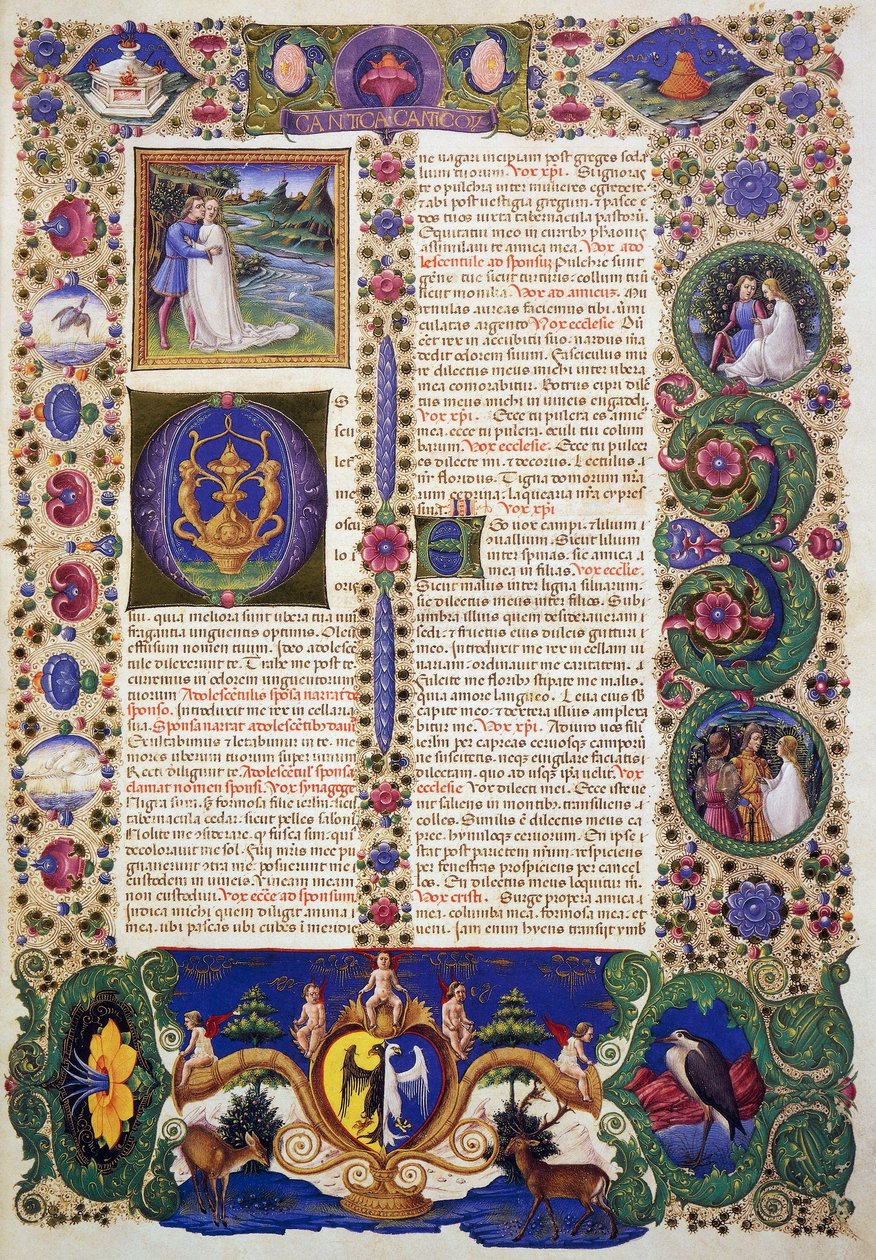 CANTICA CANTICOꝜ
OS
cu
let
me
oscu
lo
oris
sui. quia meliora sunt ubera tua uino
fragantia unguentis optimis. Oleū
effusum nomen tuum. Ideo adolescē
tule dilexerunt te. Trahe me post te
curremus in odorem unguentorum
tuorum Adolescētulis spōsa narrat de
sponso. Introduxit me rex in cellaria
sua. Sponsa narrat adolescētib⁊ dauit
Exultabimus ⁊ letabimur in te. me
mores uberum tuorum super uinum
Recti diligunt te. Adolescētul' sponsa
clamat nomen sponsi. Vox synagoge
Nigra sum. sȝ formosa filie ierl̄m. sicut
tabernacula cedar. sicut pelles salōis
Nolite me ꝯsiderare. ꝙ fusca sim. quia
decolorauit me sol. Filii mr̄is mee pu
gnauerunt ꝯtra me. posuerunt me
custodem in uineis. Vineam meam
non custodiui. Vox eccē̄ ad sponsum
Indica michi quem diligit anima
mea. ubi pascas ubi cubes ī meridie
ne uagari incipiam post greges soda
lium tuorum. Vox xp̄i. Si ignoras
te o pulchra inter mulieres egredere.
⁊ abi post uestigia gregum. ⁊ pasce e
dos tuos iuxta tabernacula pastorū.
Equitatui meo in curribȝ pharaonis
assimilaui te amica mea. Vox ado
lescentule ad sponsūȝ. Pulchre sunt
gene tue sicut turturis. collum tuū
sicut monilia. Vox ad amicus. Mu
renulas aureas faciemus tibi. u̅mi
culatas argento Vox ecclesie Dū
cēt rex in accubitu suo. nardus m̄a
dedit odorem suum. Fasciculus mir
re dilectus meus michi inter ubera
mea comorabitur. Botrus cipri dile
ctus meus michi in uineis engaddi.
Vox xp̄i. Ecce tu pulcra es amica
mea. ecce tu pulcra. oculi tui colum
barum. Vox ecclesie. Ecce tu pulcer
es dilecte mi. ⁊ decorus. Lectulus
nr̄ floridus. Tigna domorum nr̄a
rum cedrina. laquearia nr̄a cypres
sina. II Vox xp̄i
EGo flos campi. ⁊ lilium c
ouallium. Sicut lilium
inter spinas. sic amica
mea in filias. Vox ecclie.
Sicut malus inter ligna siluarum.
sic dilectus meus inter filios. Sub
umbra illius quem desideraueram
sedi. ⁊ fructus eius dulcis gutturi
meo. Introduxit me rex in cellam ui
nariam. ordinauit me caritatem.
Fulcite me floribus stipate me malis.
Quia amore langueo. Leua eius sb̄
capite meo. ⁊ dextera illius amplexa
bitur me. Vox xp̄i. Adiuro uos filie
ierl̄m per capreas ceruosque camporū
ne suscitetis. neqȝ euigilare faciatis
dilectam. quo ad usqȝ ip̄a uelit. Vox
ecclesie Vox dilecti mei. Ecce iste ue
nit saliens in montibȝ. transiliens
colles. Similis ē dilectus meus ca
pree. hynuloqȝ ceruorum. En ipse
stat post parietem nr̄um. respiciens
per fenestras prospiciens per cancel
los. En dilectus meus loquitur m̄.
Vox cristi. Surge propera amica
mea. columba mea. formosa mea. et
ueni. Iam enim hyens transijt ymb